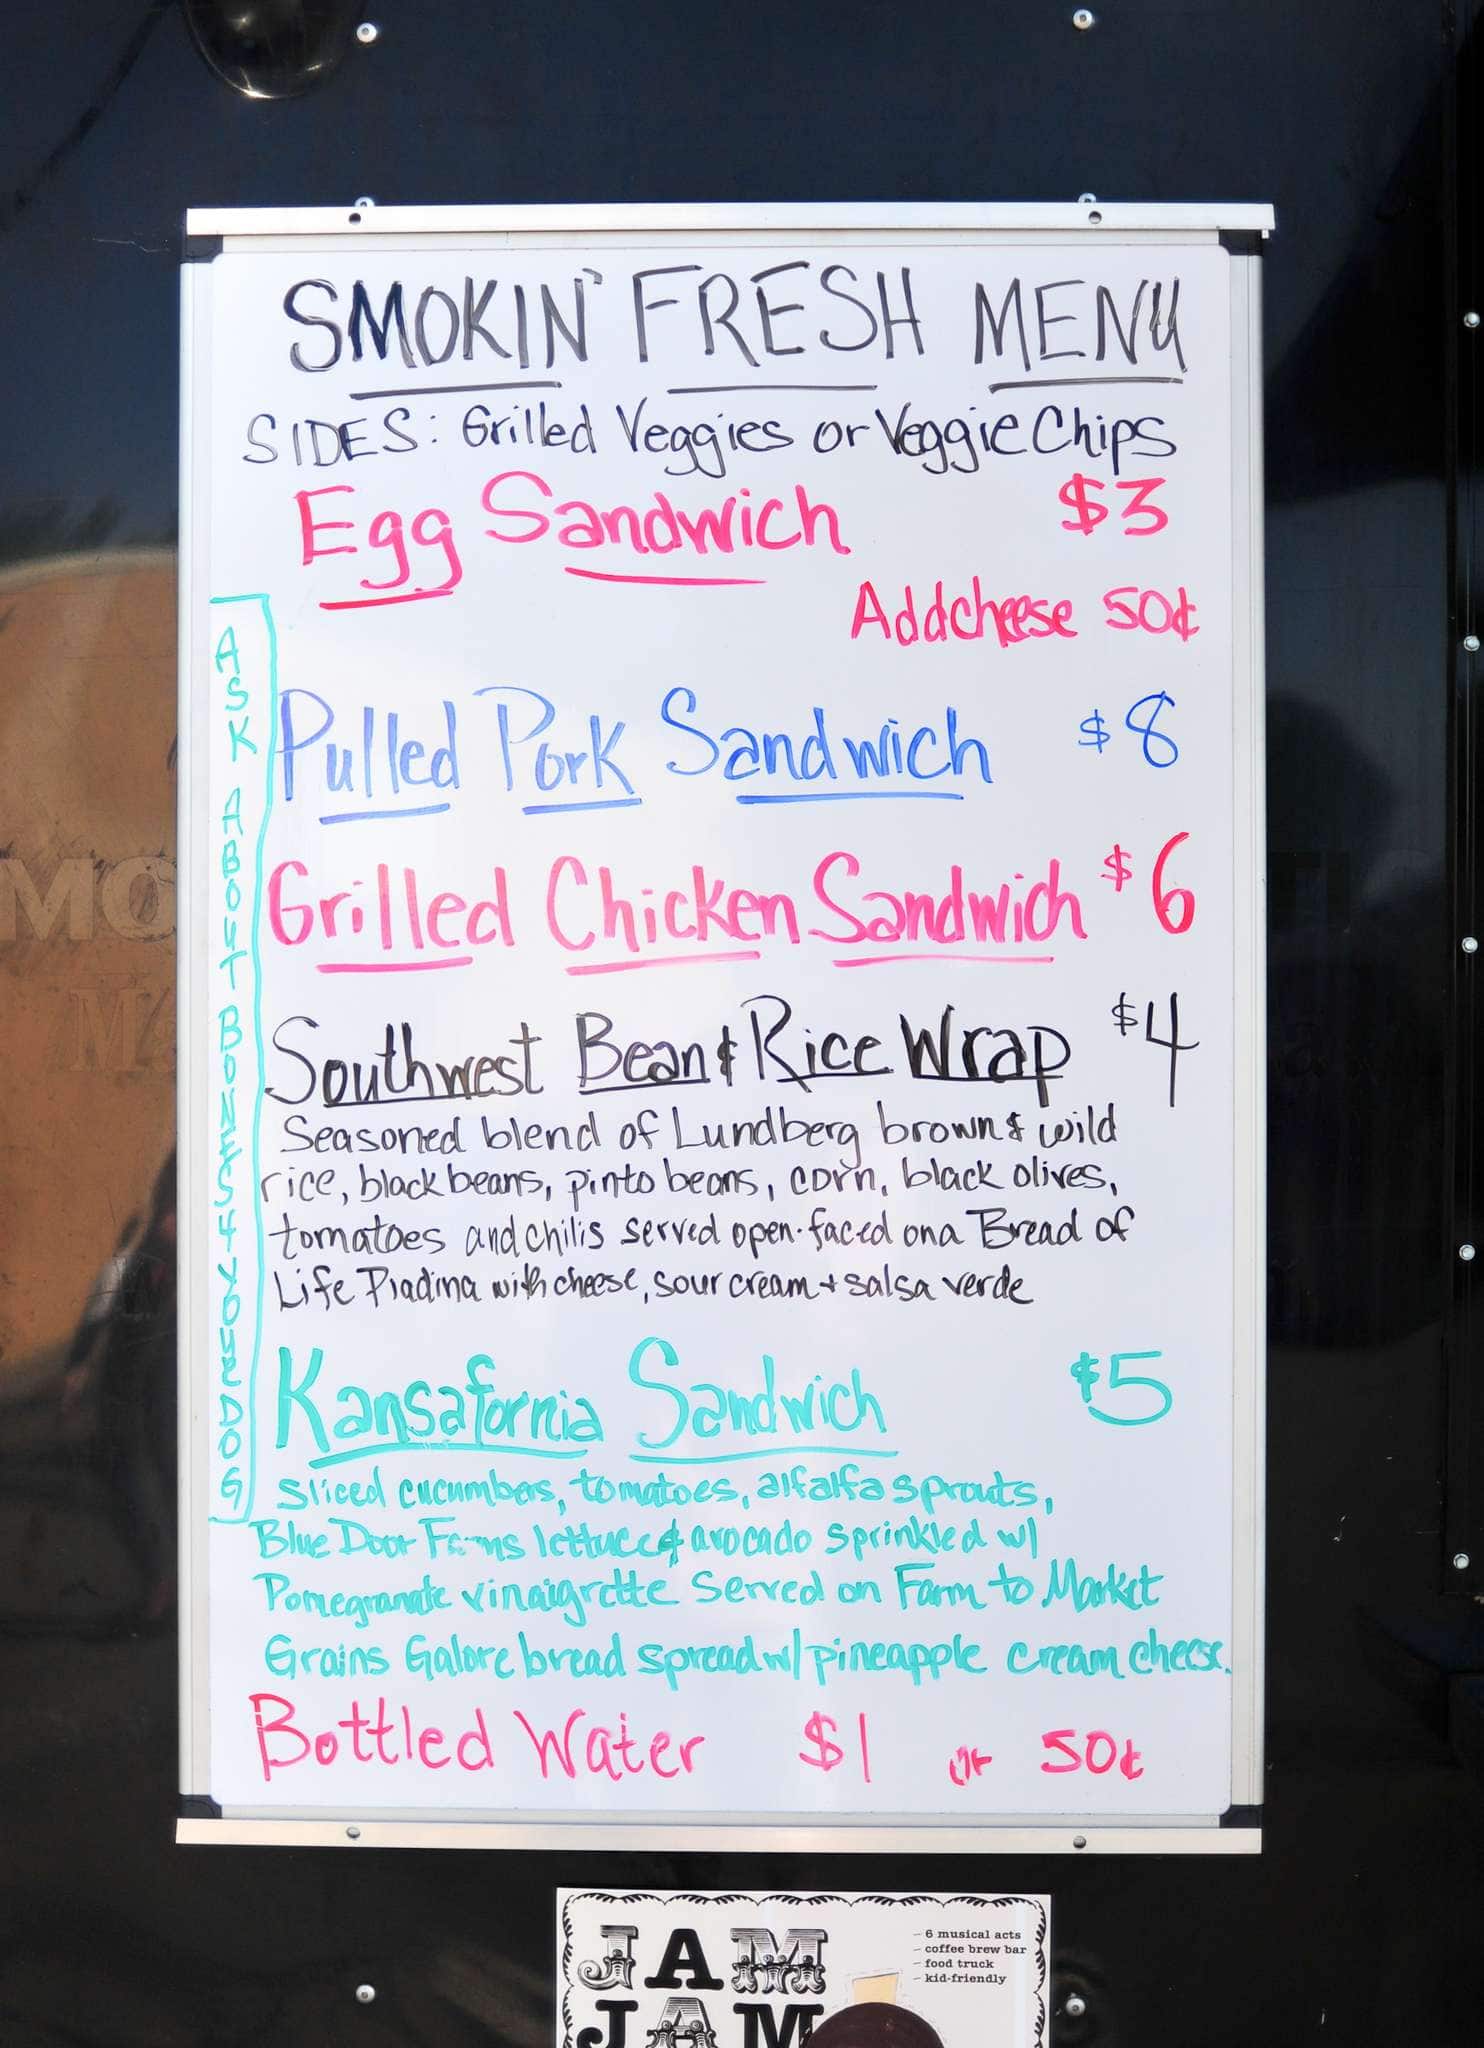 SMOKIN' FRESH MENU
SIDES: Grilled Veggies or Veggie Chips
Egg Sandwich $3
Add cheese 50¢
Pulled Pork Sandwich $8
Grilled Chicken Sandwich $6
Southwest Bean & Rice Wrap $4
Seasoned blend of Lundberg brown & wild
rice, black beans, pinto beans, corn, black olives,
tomatoes and chilis served open-faced on a Bread of
Life Piadina with cheese, sour cream + salsa verde
Kansafornia Sandwich $5
Sliced cucumbers, tomatoes, alfalfa sprouts,
Blue Door Farms lettuce & avocado sprinkled w/
Pomegranate vinaigrette served on Farm to Market
Grains Galore bread spread w/ pineapple cream cheese.
Bottled Water $1 or 50¢
ASK ABOUT BONES 4 YOUR DOG
JAM
JAM
– 6 musical acts
– coffee brew bar
– food truck
– kid-friendly